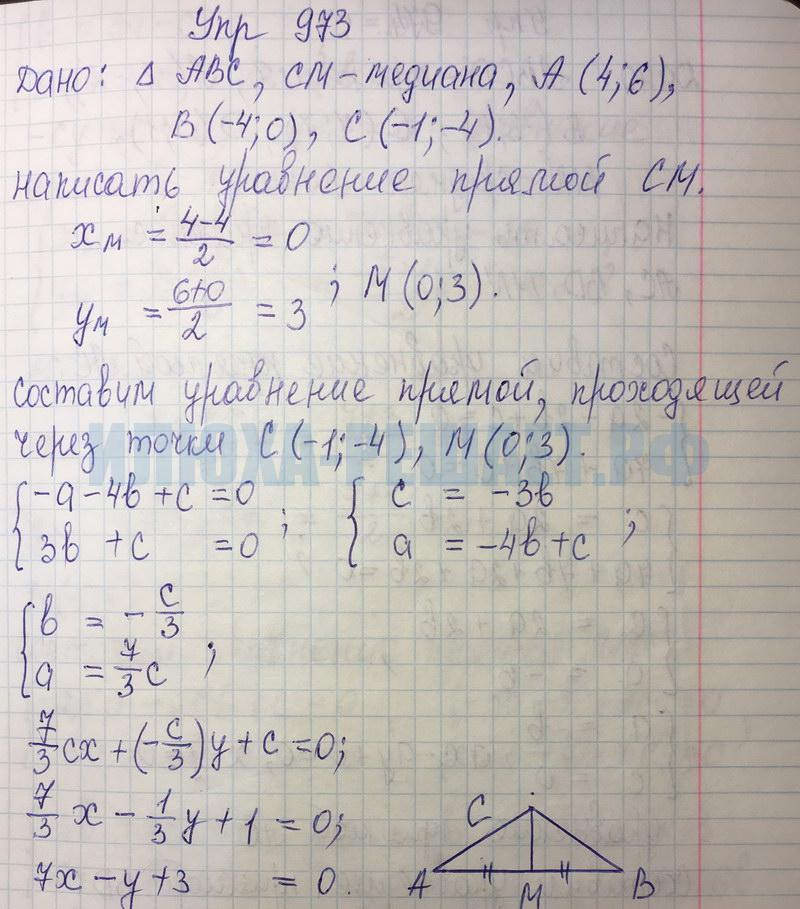 Упр 973
Дано: Δ ABC, CM - медиана, A (4; 6),
B (-4; 0), C (-1; -4).
написать уравнение прямой CM.
x_M = (4-4)/2 = 0
y_M = (6+0)/2 = 3 ; M (0; 3).
составим уравнение прямой, проходящей
через точки C (-1; -4), M (0; 3).
ИЛЮХА-РЕШАЕТ.РФ
{ -a - 4b + c = 0 ; { c = -3b ;
3b + c = 0 a = -4b + c
{ b = - c/3
a = 7/3 c ;
7/3 cx + (- c/3) y + c = 0;
7/3 x - 1/3 y + 1 = 0;
7x - y + 3 = 0.
C
A M B